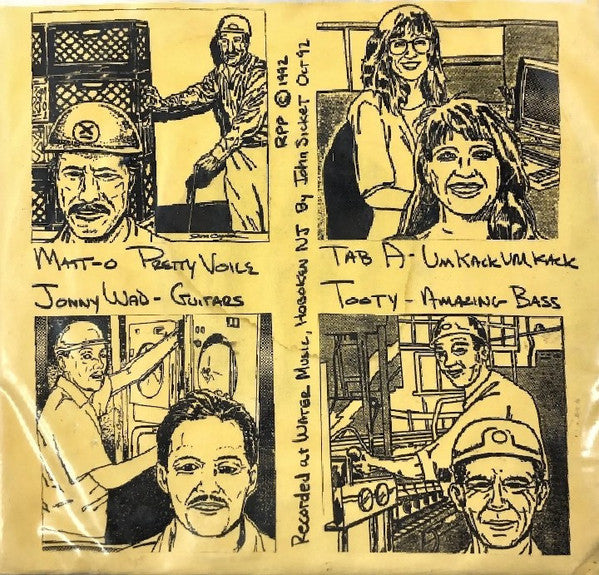 Matt-o Pretty Voice
Jonny Wad - Guitars
RPP © 1992
Recorded at Water Music, Hoboken NJ By John Sicket Oct 92
Tab A - UmKackUmKack
Tooty - Amazing Bass